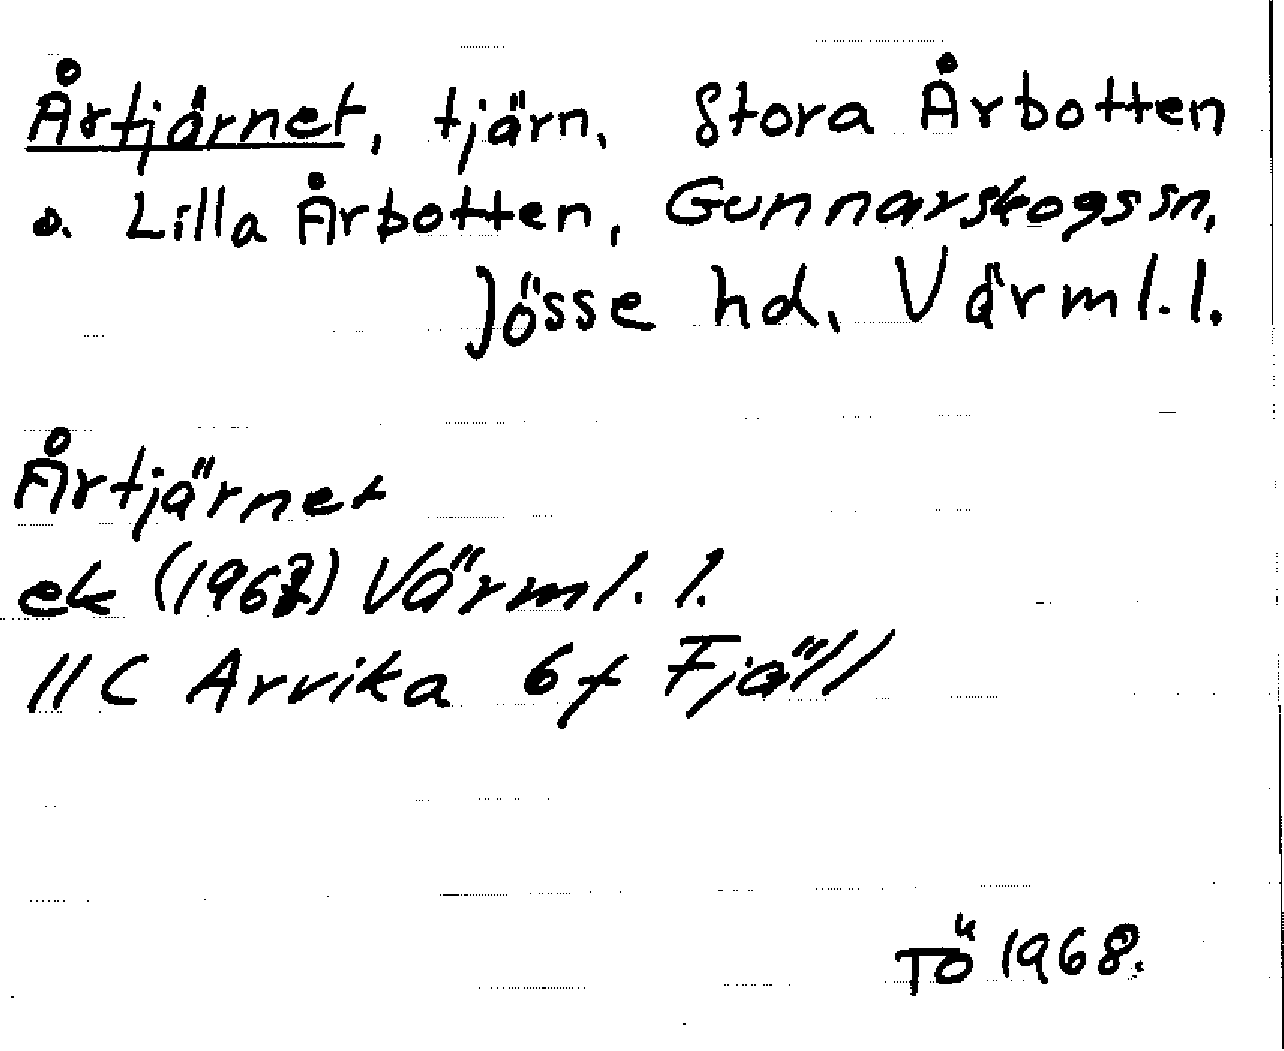 Årtjärnet, tjärn, Stora Årbotten
o. Lilla Årbotten, Gunnarskogs sn,
Jösse hd, Värml.l.
Årtjärnet
ek Värml. l.
11C Arvika 6f Fjäll
TÖ 1968.